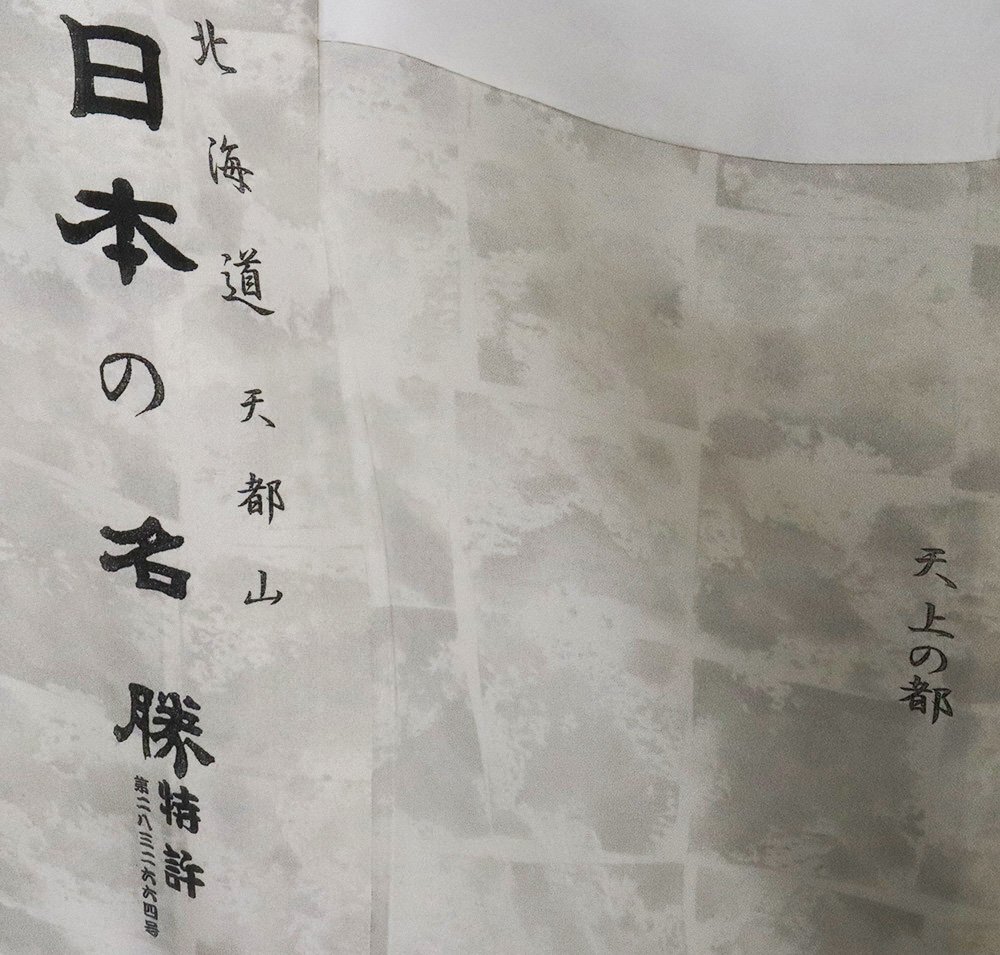 天上の都
北海道天都山
日本の名勝
特許
第二八三二六六四号